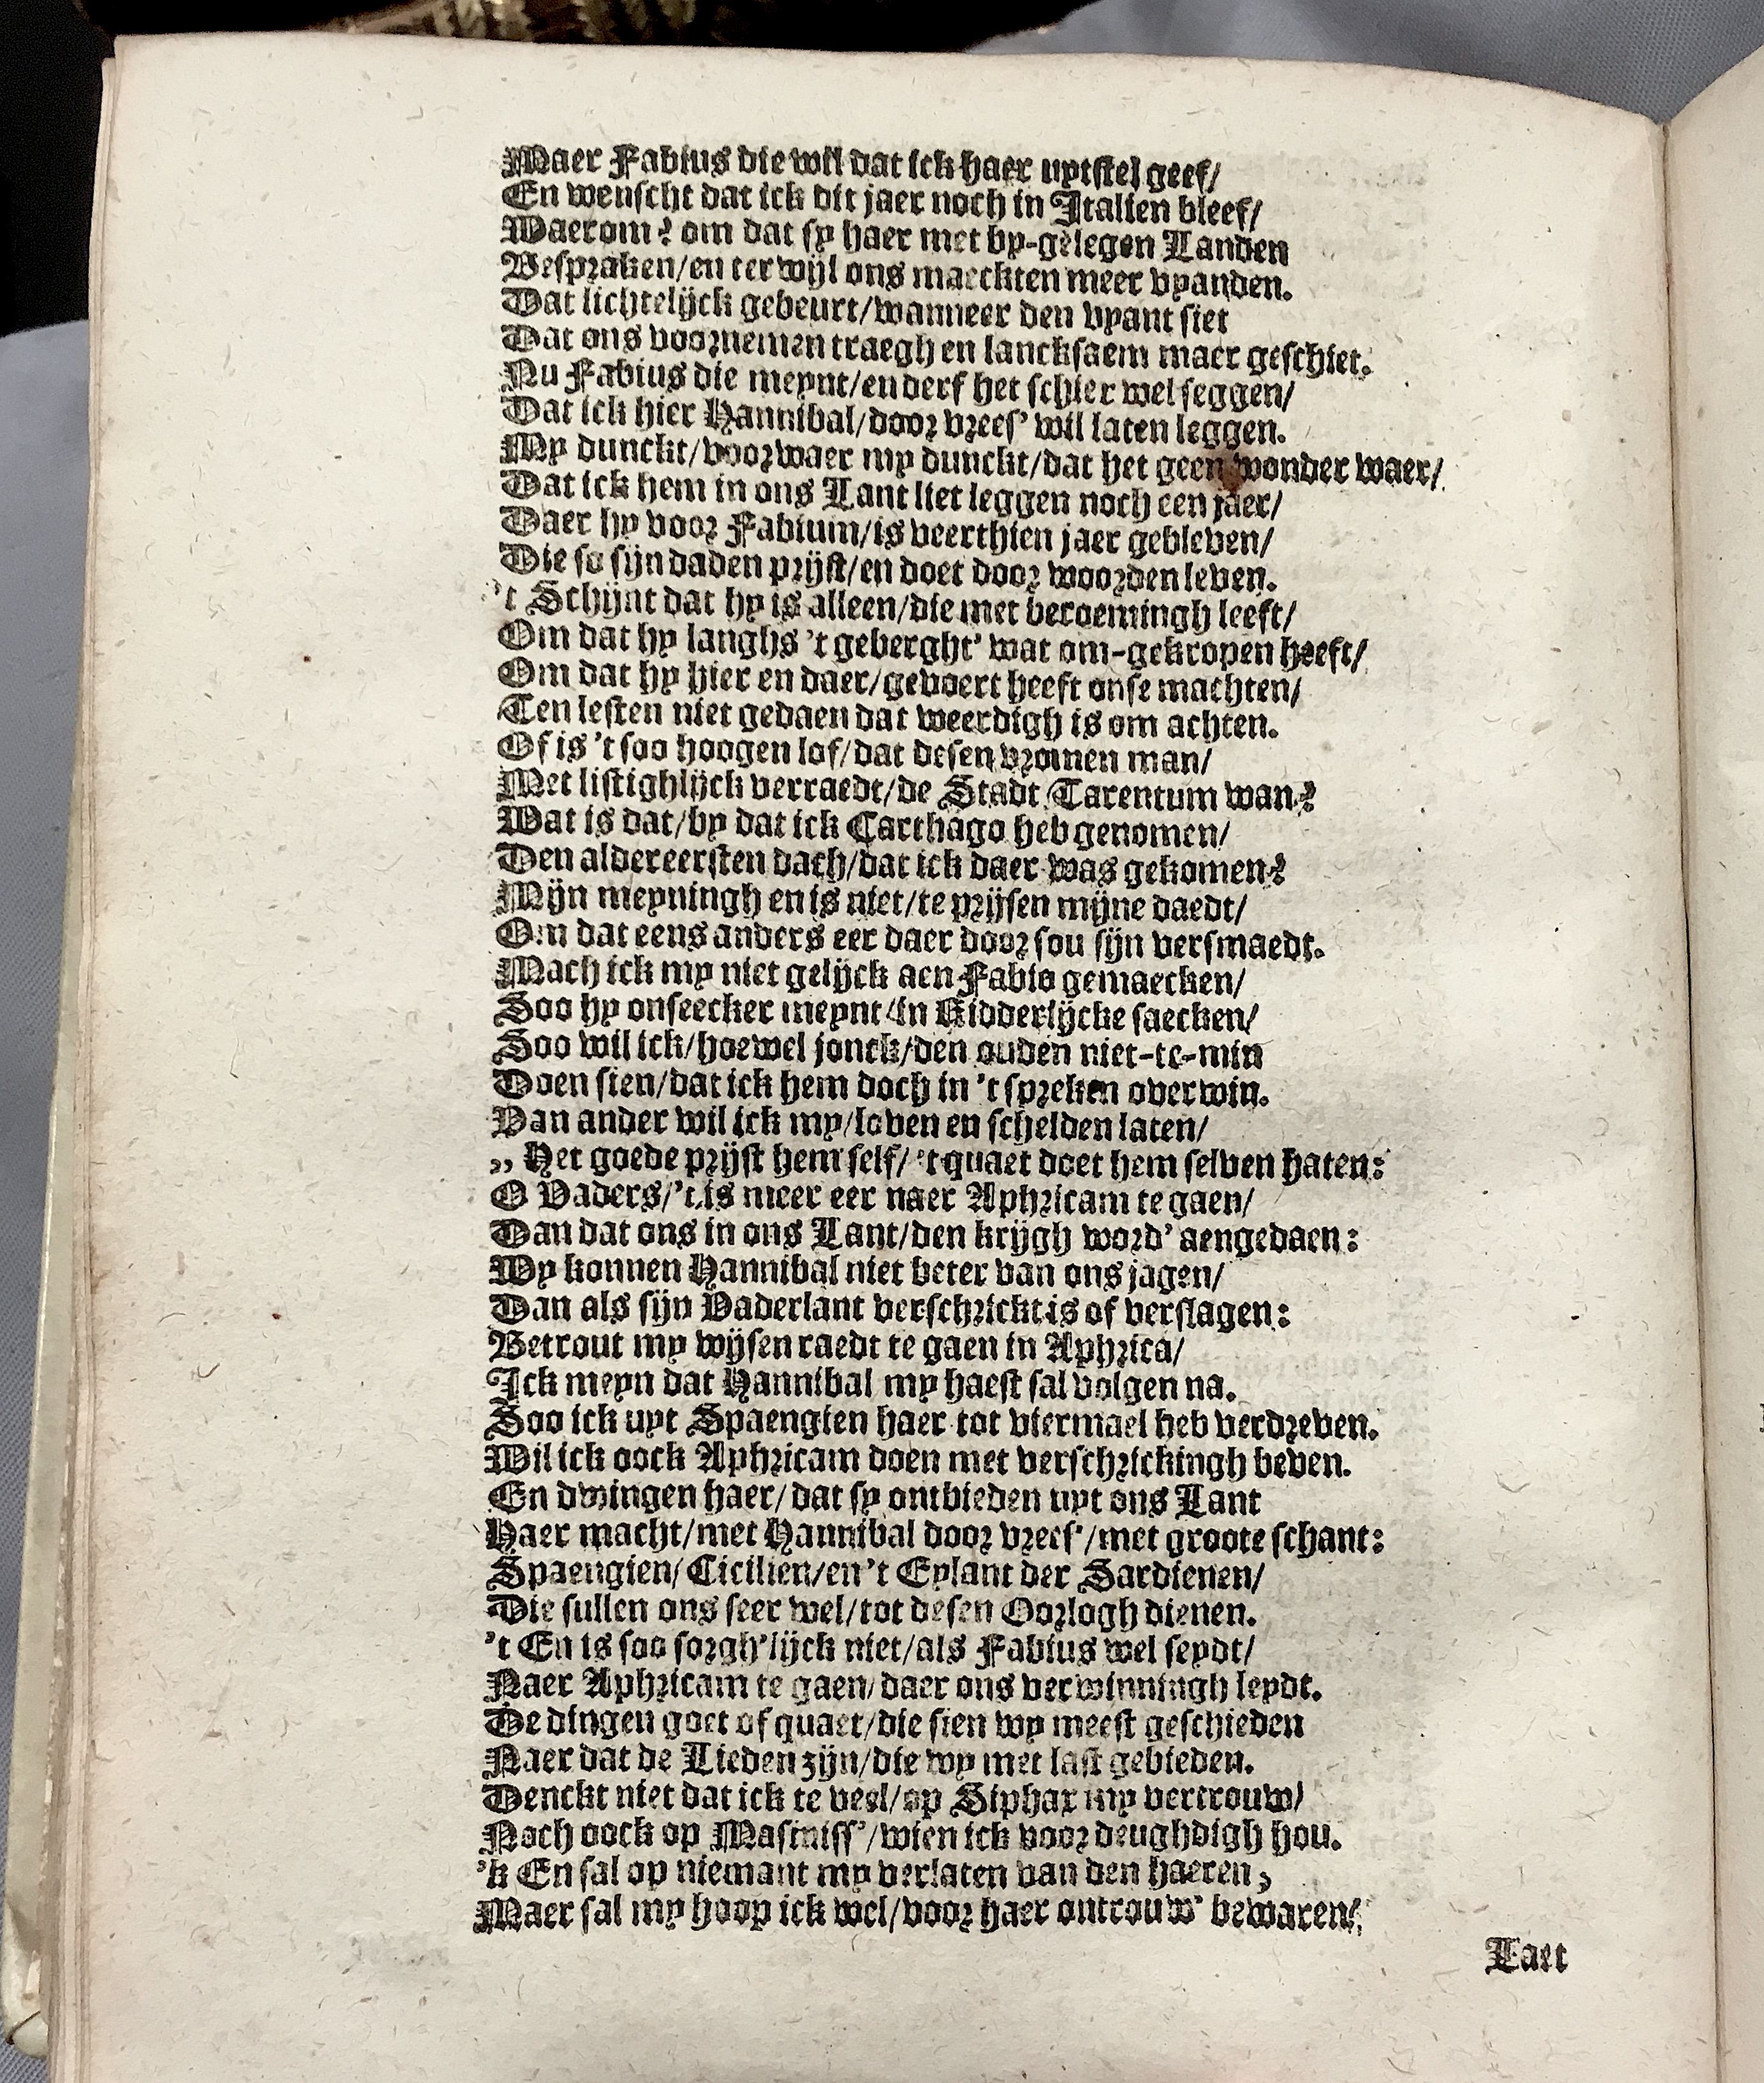 Maer Fabius die wil dat ick haer uytstel geef/
En wenscht dat ick dit jaer noch in Italien bleef/
Waerom? om dat sy haer met by-gelegen Landen
Bespraken/en terwijl ons maeckten meer vyanden.
Dat lichtelijck gebeurt/wanneer den vyant siet
Dat ons voornemen traegh en lancksaem maer geschiet.
Nu Fabius die meynt/en derf het schier wel seggen/
Dat ick hier Hannibal/door vrees' wil laten leggen.
My dunckt/voorwaer my dunckt/dat het geen wonder waer/
Dat ick hem in ons Lant liet leggen noch een jaer/
Daer hy voor Fabium/is veerthien jaer gebleven/
Die so sijn daden prijst/en doet door woorden leven.
't Schijnt dat hy is alleen/die met beroemingh leeft/
Om dat hy langhs 't geberght' wat om-gekropen heeft/
Om dat hy hier en daer/gevoert heeft onse machten/
Ten lesten niet gedaen dat weerdigh is om achten.
Of is 't soo hoogen lof/dat desen vromen man/
Met listighlijck verraedt/de Stadt Tarentum wan?
Wat is dat/by dat ick Carthago heb genomen/
Den aldereersten dach/dat ick daer was gekomen?
Mijn meyningh en is niet/te prijsen mijne daedt/
Om dat eens anders eer daer door sou sijn versmaedt.
Mach ick my niet gelijck aen Fabio gemaecken/
Soo hy onseecker meynt/in Ridderlijcke saecken/
Soo wil ick/hoewel jonck/den ouden niet-te-min
Doen sien/dat ick hem doch in 't spreken overwin.
Van ander wil ick my/loven en schelden laten/
,, Het goede prijst hem self/'t quaet doet hem selven haten:
O Vaders/'t is meer eer naer Aphricam te gaen/
Dan dat ons in ons Lant/den krijgh word' aengedaen:
Wy konnen Hannibal niet beter van ons jagen/
Dan als sijn Vaderlant verschrickt is of verslagen:
Betrout my wijsen raedt te gaen in Aphrica/
Ick meyn dat Hannibal my haest sal volgen na.
Soo ick uyt Spaengien haer tot viermael heb verdreven.
Wil ick oock Aphricam doen met verschrickingh beven.
En dwingen haer/dat sy ontbieden uyt ons Lant
Haer macht/met Hannibal door vrees'/met groote schant:
Spaengien/Cicilien/en 't Eylant der Sardienen/
Die sullen ons seer wel/tot desen Oorlogh dienen.
't En is soo sorgh'lijck niet/als Fabius wel seydt/
Naer Aphricam te gaen/daer ons verwinningh leydt.
De dingen goet of quaet/die sien wy meest geschieden
Naer dat de Lieden zijn/die wy met last gebieden.
Denckt niet dat ick te veel/op Siphax my vertrouw/
Noch oock op Masiniss'/wien ick voor deughdigh hou.
'k En sal op niemant my verlaten van den haeren;
Maer sal my hoop ick wel/voor haer ontrouw' bewaren/
Laet